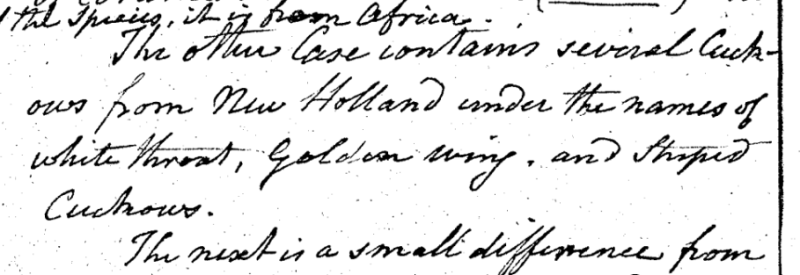 the species, it is from Africa.
The other Case contains several Cuck-
ows from New Holland under the names of
white throat, Golden wing, and Striped
Cuckows.
The next is a small difference from